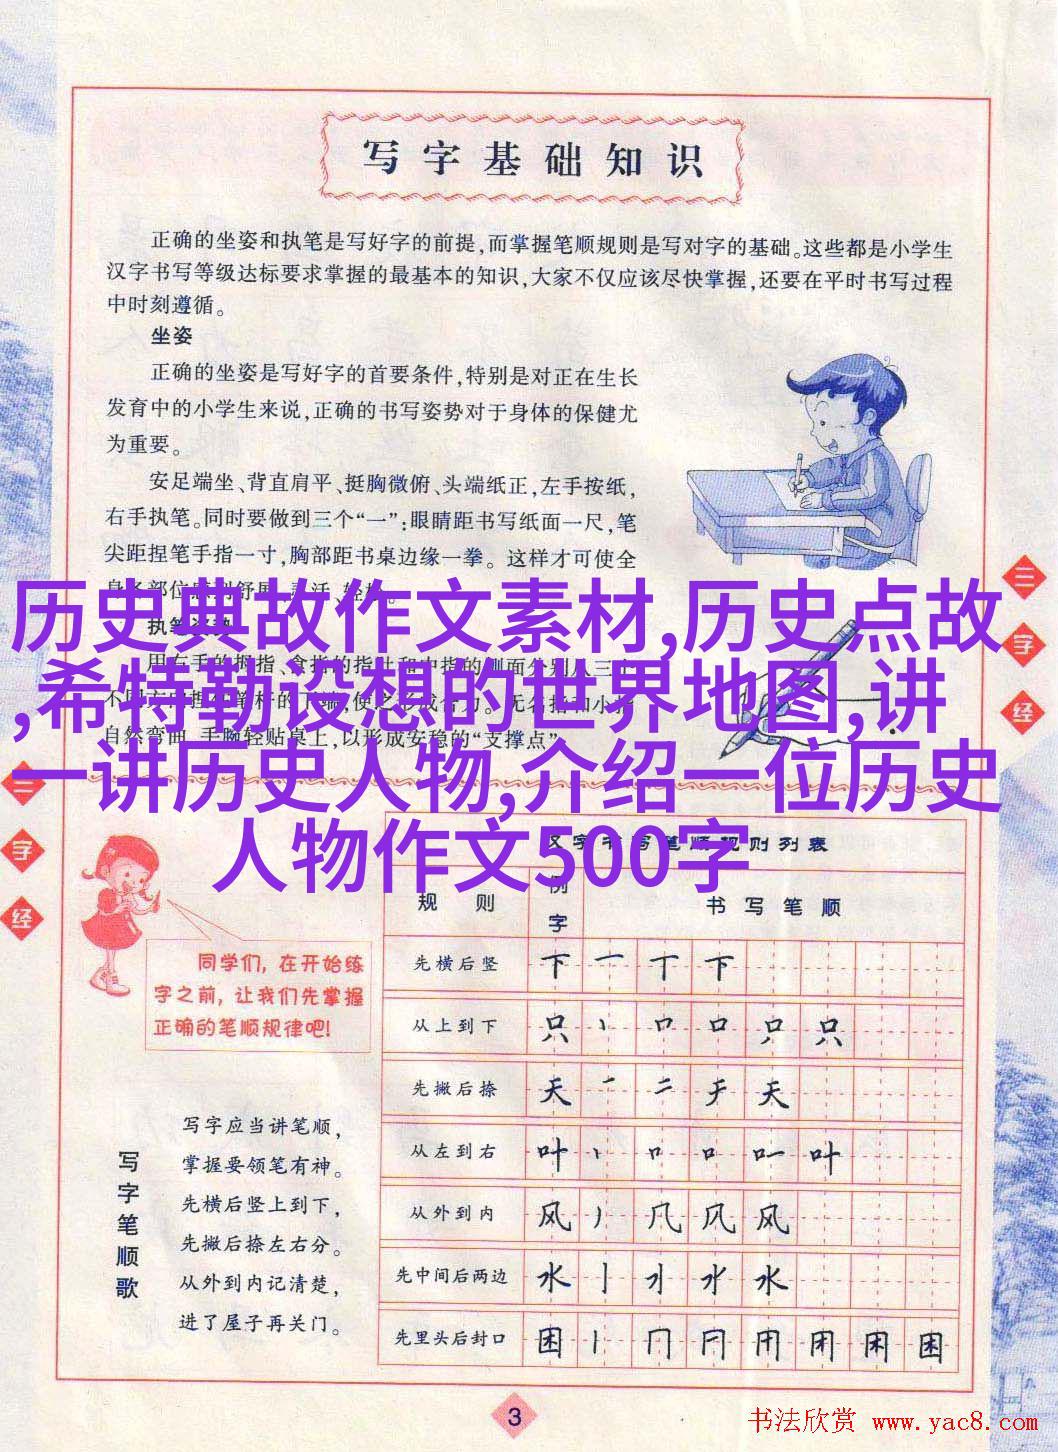 写字基础知识
正确的坐姿和执笔是写好字的前提,而掌握笔顺规则是写对字的基础。这些都是小学生
汉字书写等级达标要求掌握的最基本的知识,大家不仅应该尽快掌握,还要在平时书写过程
中时刻遵循。
坐姿
正确的坐姿是写好字的首要条件,特别是对正在生长
发育中的小学生来说,正确的书写姿势对于身体的保健尤
为重要。
安足端坐、背直肩平、挺胸微俯、头端纸正,左手按纸,
右手执笔。同时要做到三个“一”:眼睛距书写纸面一尺,笔
尖距捏笔手指一寸,胸部距书桌边缘一拳。这样才可使全
历史典故作文素材,历史点故
,希特勒设想的世界地图,讲
一讲历史人物,介绍一位历史
人物作文500字
自然弯曲,手腕轻贴桌上,以形成安稳的“支撑点”
三
字
经
三
字
经
同学们,在开始练
字之前,让我们先掌握
正确的笔顺规律吧!
写字笔顺歌
写字应当讲笔顺,
掌握要领笔有神。
先横后竖上到下,
先撇后捺左右分。
从外到内记清楚,
进了屋子再关门。
规则 例字 书写笔顺
先横后竖 下 一 丅 下
从上到下 只 丶 口 口 只
先撇后捺 天 二 天
从左到右 叶 丶 口 口 叶
从外到内 风 丿 几 风 风
先中间后两边 水 亅 水
先里头后封口 困 丨 冂 困
3
书法欣赏 www.yac8.com